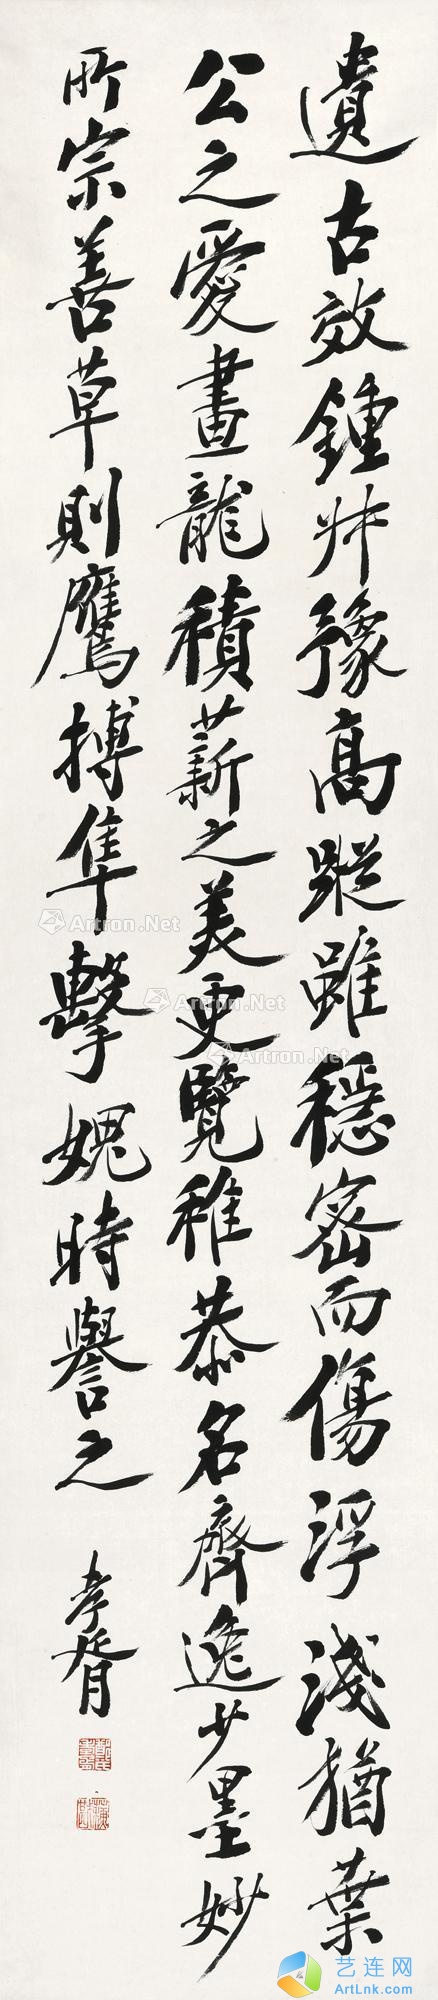 遺古效鍾豫高蹤雖穩密而傷浮淺猶葉
公之愛畫龍積薪之美更覽稚恭名齊逸少墨妙
所宗善草則鷹搏隼擊媿時譽之
孝胥
Artron.Net
Artron.Net
Artron.Net
艺连网
ArtLnk.com